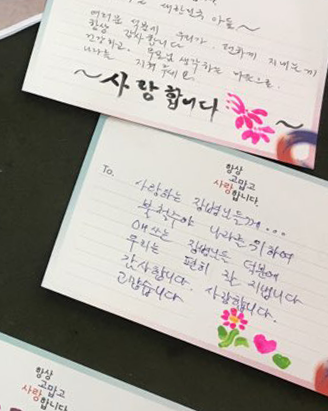 대한민국 아들~
여러분 덕분에 우리가 편하게 지내는게
항상 감사합니다
건강하고, 부모님 생각하는 마음으로
나라를 지켜주세요
~사랑합니다~
항상
고맙고
사랑합니다.
To.
사랑하는 장병님들께...
불철주야 나라를 위하여
애쓰는 장병님들 덕분에
우리는 편히 잘 지냅니다
감사합니다. 사랑합니다.
고맙습니다
항상
고맙고
사랑
합니다.